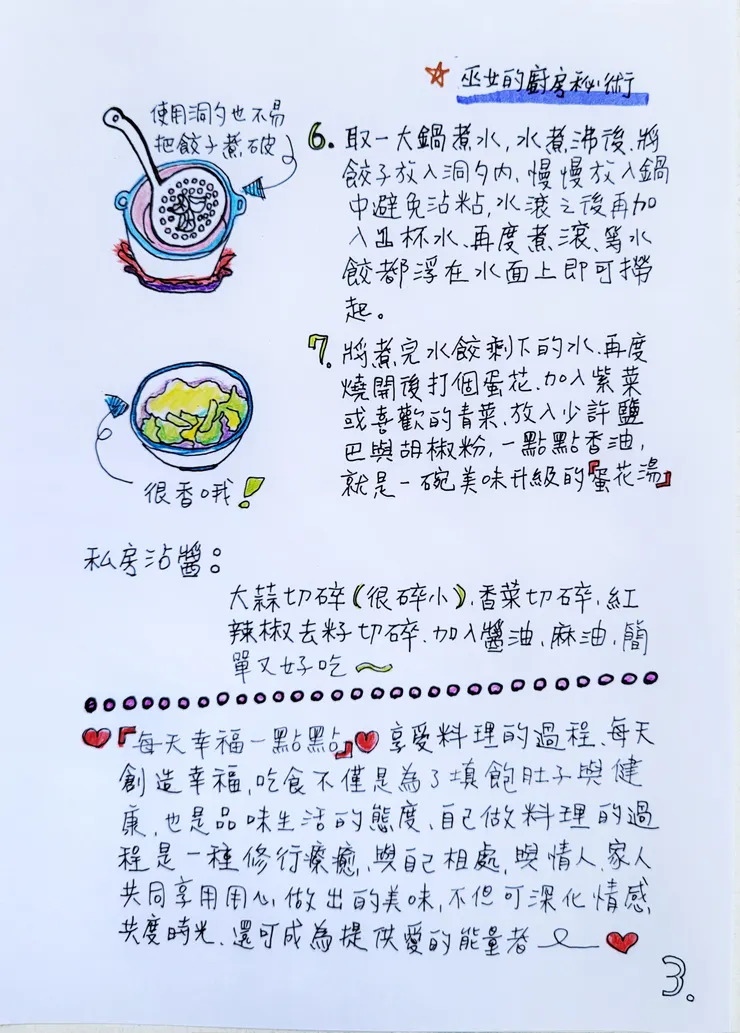 巫女的廚房秘術
使用洞勺也不易
把餃子煮破皮
6. 取一大鍋煮水,水煮沸後、將
餃子放入洞勺內、慢慢放入鍋
中避免沾粘,水滾之後再加
入半杯水、再度煮滾、等水
餃都浮在水面上即可撈
起。
7. 將煮完水餃剩下的水、再度
燒開後打個蛋花、加入紫菜
或喜歡的青菜、放入少許鹽
巴與胡椒粉,一點點香油,
就是一碗美味升級的『蛋花湯』
很香哦!
私房沾醬:
大蒜切碎(很碎小)、香菜切碎、紅
辣椒去籽切碎、加入醬油、麻油、簡
單又好吃~
『每天幸福一點點』享受料理的過程、每天
創造幸福,吃食不僅是為了填飽肚子與健
康,也是品味生活的態度、自己做料理的過
程是一種修行療癒,與自己相處,與情人、家人
共同享用用心做出的美味,不但可深化情感、
共度時光、還可成為提供愛的能量者
3.